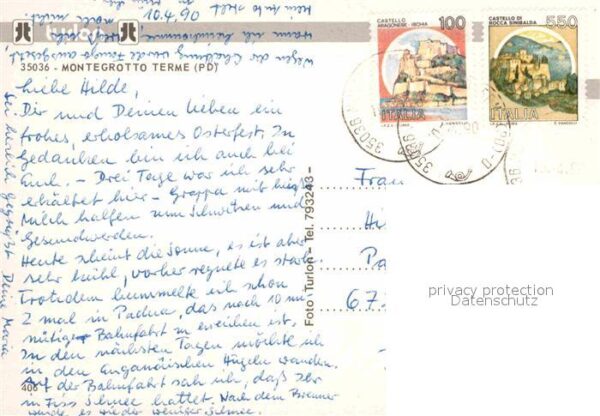 10.4.90
35036 - MONTEGROTTO TERME (PD)
CASTELLO
ARAGONESE - ISCHIA
100
ITALIA
CASTELLO DI
ROCCA SINIBALDA
550
ITALIA
35036
Liebe Hilde,
Dir und Deinen Lieben ein
frohes, erholsames Osterfest. In
Gedanken bin ich auch bei
Euch. - Drei Tage war ich sehr
erkältet hier - Grappa mit heißer
Milch halfen zum Schwitzen und
Gesundwerden.
Heute scheint die Sonne, es ist aber
sehr kühl, vorher regnete es stark.
Trotzdem bummelte ich schon
2 mal in Padua, das nach 10 mi-
nütiger Bahnfahrt zu erreichen ist.
In den nächsten Tagen möchte ich
in den Euganäischen Hügeln wandern.
Auf der Bahnfahrt sah ich, daß Ihr
in Fiss Schnee hattet. Nach dem Brenner
wurde es wieder weniger Schnee.
Sei herzlich gegrüßt Deine Maria
406
Foto - Turlon - Tel. 793243
Frau
Hi
Pa
67
privacy protection
Datenschutz